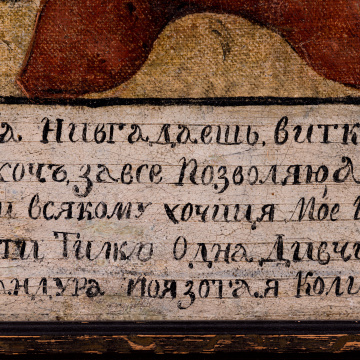 а Нивгадаешь, витк
хочъ, завсе Позволяю А
и всякому хочиця Мое
ти Тилко Одна Дивчи
андура моя зотая Коли